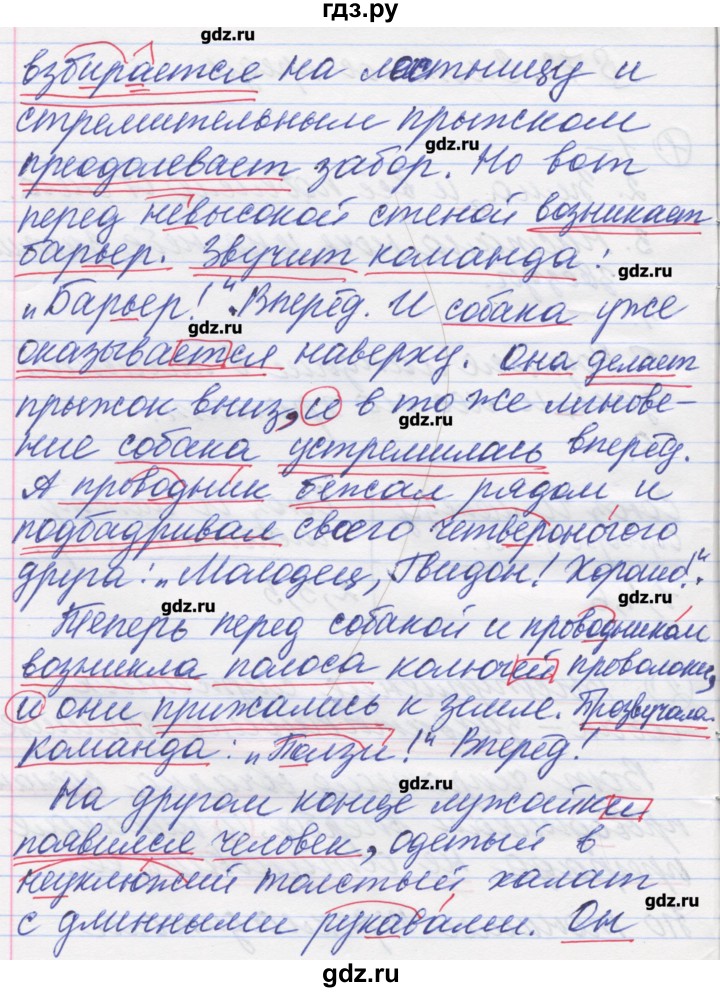 гдз.ру
gdz.ru
взбирается на лестницу и
стремительным прыжком
преодолевает забор. Но вот
перед невысокой стеной возникает
барьер. Звучит команда:
gdz.ru
„Барьер!“. Вперёд. И собака уже
gdz.ru
оказывается наверху. Она делает
прыжок вниз, и в то же мгнове-
gdz.ru
ние собака устремилась вперёд.
А проводник бежал рядом и
gdz.ru
подбадривал своего четвероногого
друга: „Молодец, Гвидон! Хорошо!“.
gdz.ru
Теперь перед собакой и проводником
возникла полоса колючей проволоки,
gdz.ru
и они прижались к земле. Прозвучала
команда: „Ползи!“ Вперёд!
gdz.ru
На другом конце лужайки
появился человек, одетый в
gdz.ru
неуклюжий толстый халат
с длинными рукавами. Он
gdz.ru